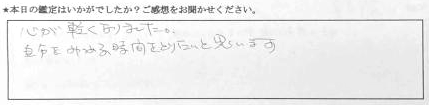 ★本日の鑑定はいかがでしたか？ご感想をお聞かせください。
心が軽くなりました。
自分をみつめる時間をとりたいと思います